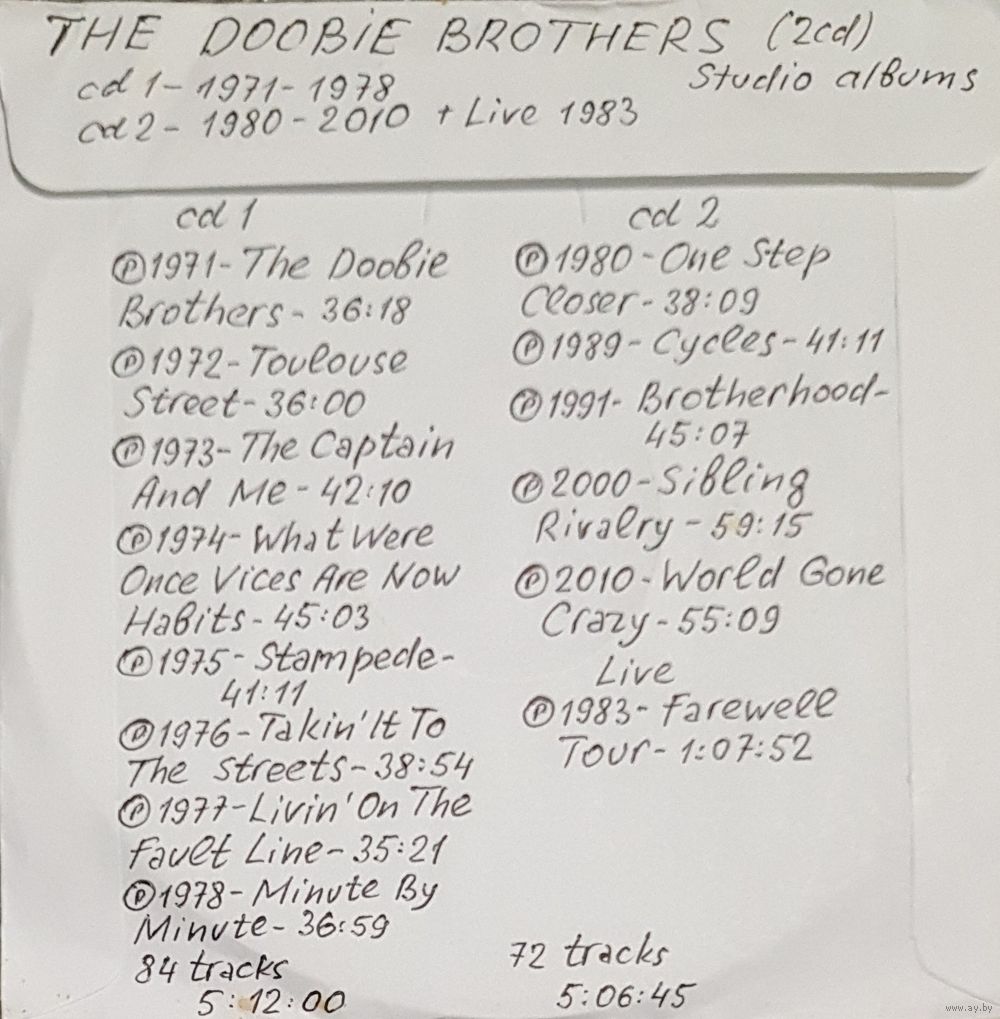 THE DOOBiE BROTHERS (2cd)
Studio albums
cd 1 - 1971 - 1978
cd 2 - 1980 - 2010 + Live 1983
cd 1
Ⓟ1971 - The Doobie
Brothers - 36:18
Ⓟ1972 - Toulouse
Street - 36:00
Ⓟ1973 - The Captain
And Me - 42:10
Ⓟ1974 - What Were
Once Vices Are Now
Habits - 45:03
Ⓟ1975 - Stampede -
41:11
Ⓟ1976 - Takin' It To
The Streets - 38:54
Ⓟ1977 - Livin' On The
Fault Line - 35:21
Ⓟ1978 - Minute By
Minute - 36:59
84 tracks
5:12:00
cd 2
Ⓟ1980 - One Step
Closer - 38:09
Ⓟ1989 - Cycles - 41:11
Ⓟ1991 - Brotherhood -
45:07
Ⓟ2000 - Sibling
Rivalry - 59:15
Ⓟ2010 - World Gone
Crazy - 55:09
Live
Ⓟ1983 - Farewell
Tour - 1:07:52
72 tracks
5:06:45
www.ay.by